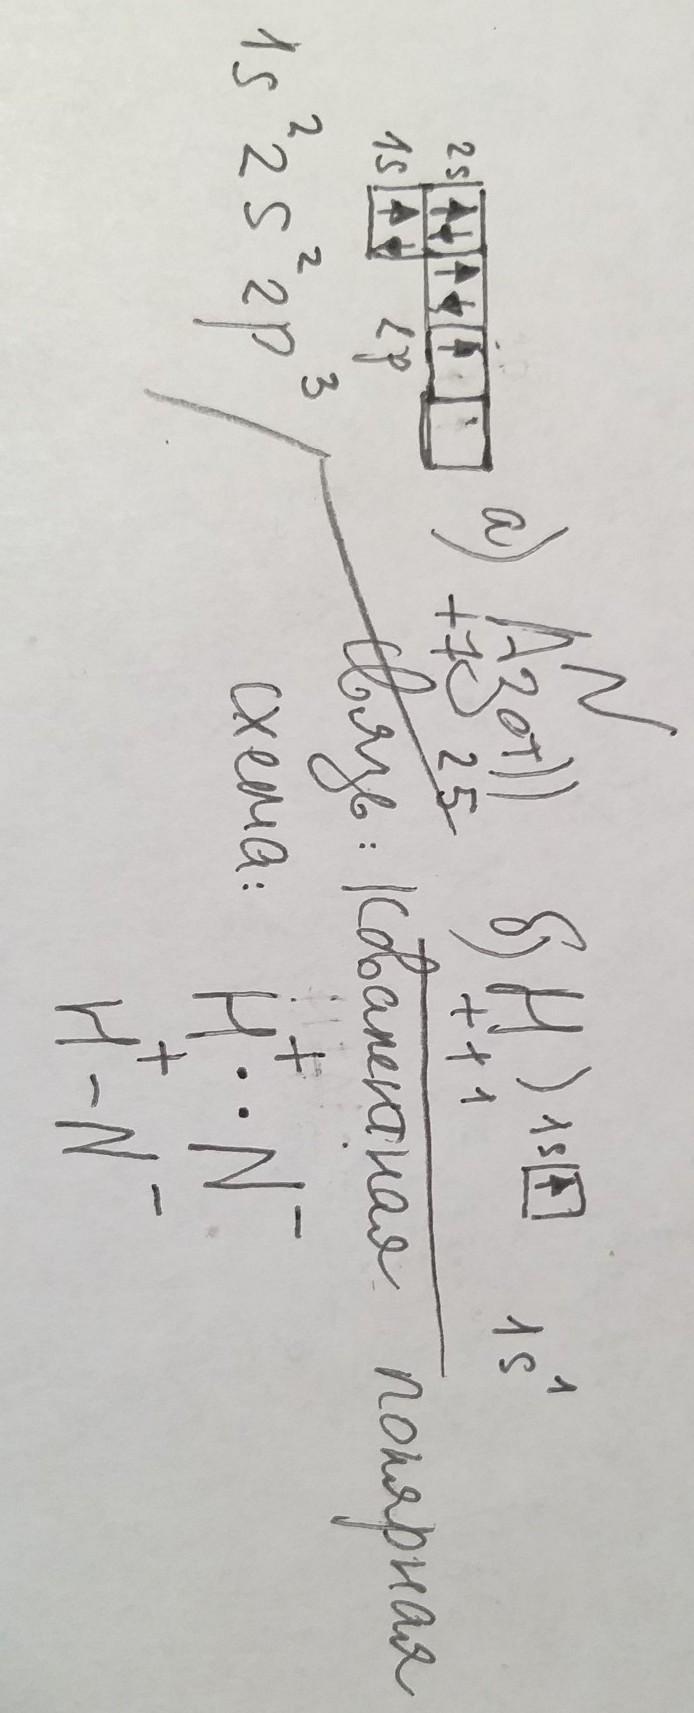 а) Азот N
+7 ) ) 2 5
2s
1s
2p
1s² 2s² 2p³
б) H )
+1 1
1s
1s¹
Связь: Ковалентная полярная
схема:
H⁺ · · N⁻
H⁺ - N⁻